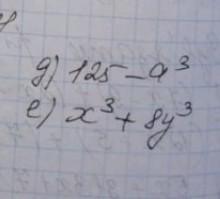 д) 125 - a³
е) x³ + 8y³